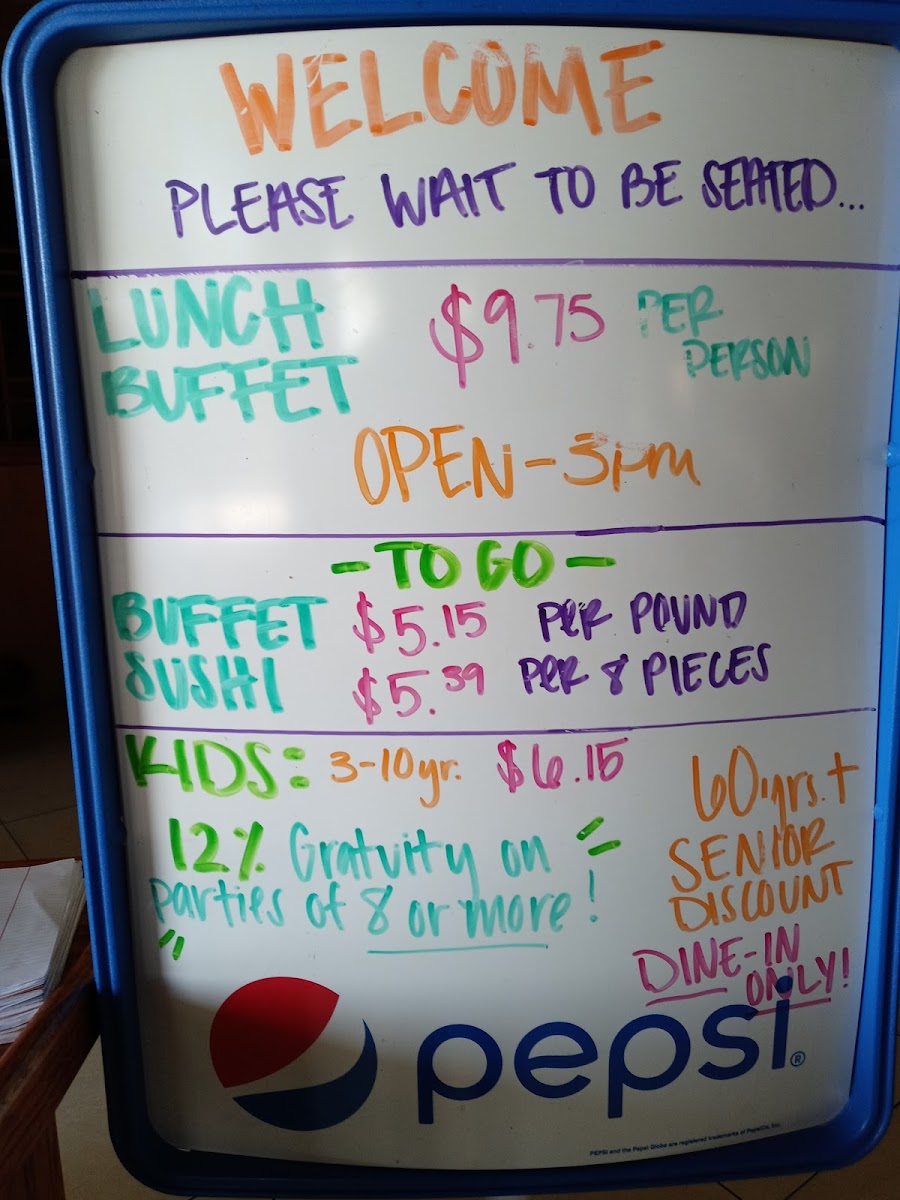 WELCOME
PLEASE WAIT TO BE SEATED...
LUNCH BUFFET $9.75 PER PERSON
OPEN-3pm
- TO GO -
BUFFET $5.15 PER POUND
SUSHI $5.39 PER 8 PIECES
KIDS: 3-10yr. $6.15
12% Gratuity on
parties of 8 or more!
60yrs.+
SENIOR
DISCOUNT
DINE-IN
ONLY!
pepsi®
PEPSI and the Pepsi Globe are registered trademarks of PepsiCo, Inc.